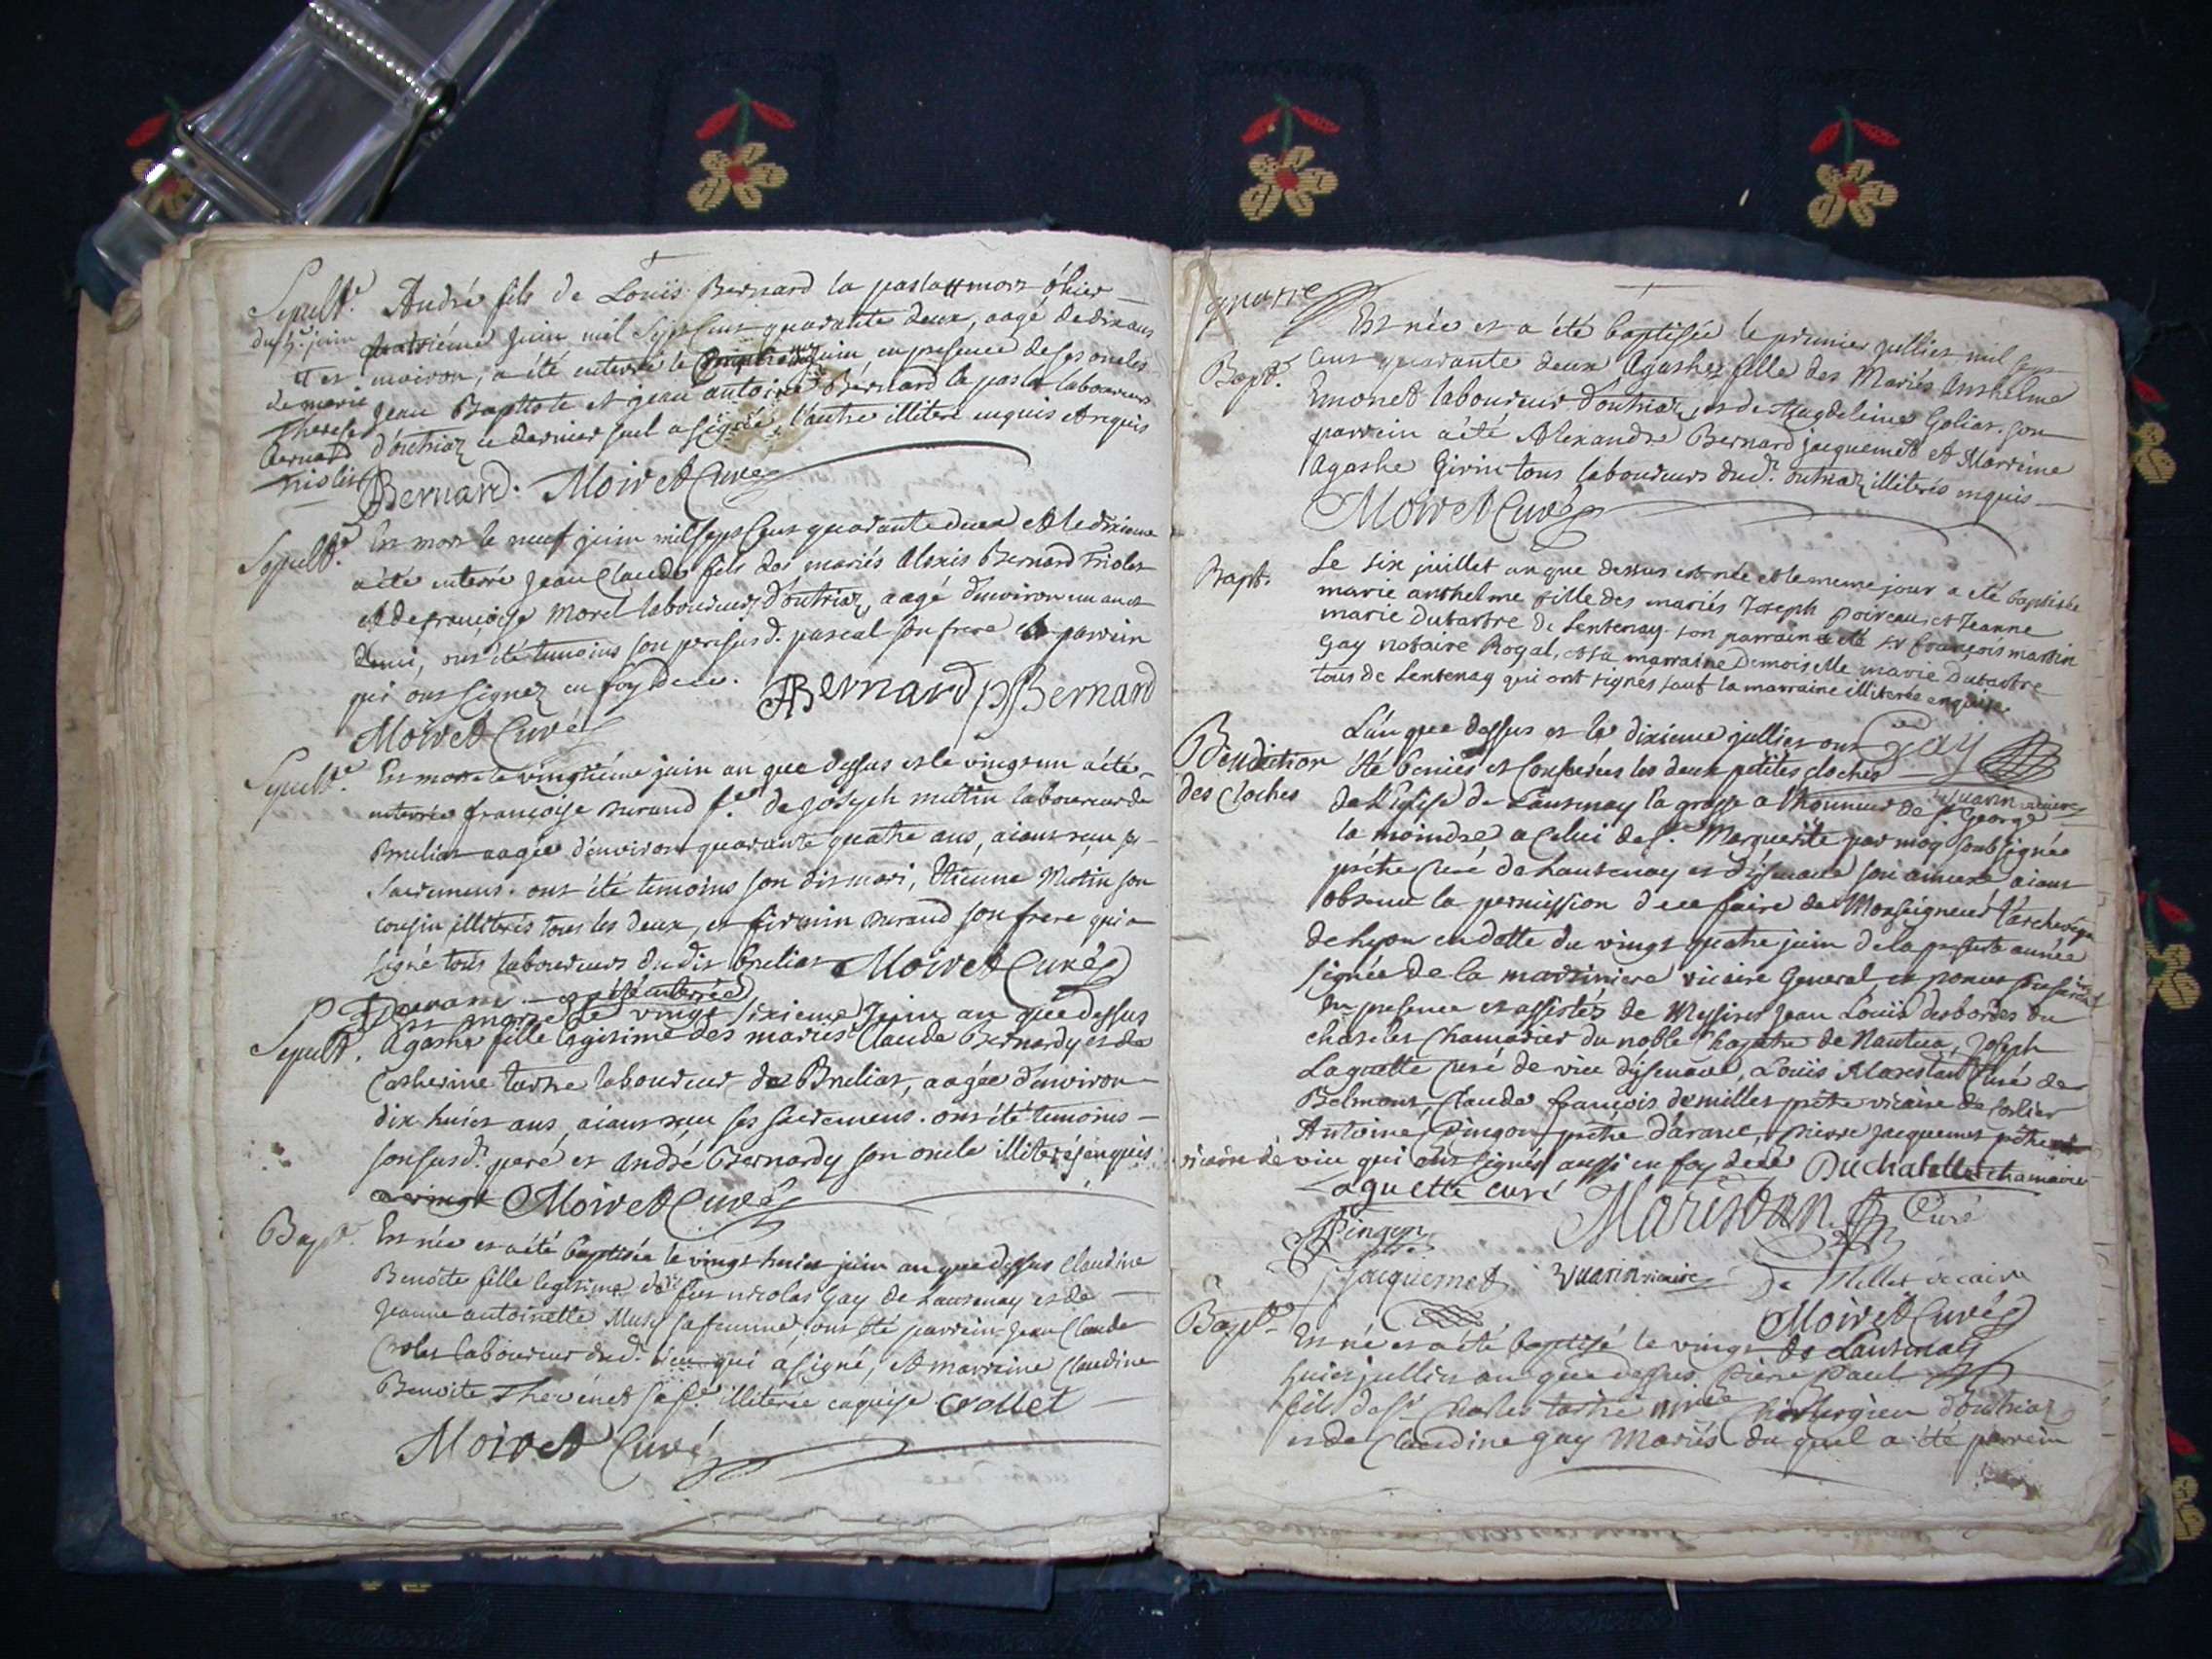 Sepult.e André fils de Loüis Bernard la pasla mort hier
du 5.e juin quatriéme juin mil Sept Cent quarante deux, aagé de dix ans
et de marie Therese Bernard Friolet
environ, a été enterré le juin, en presence de ses oncles
Jean Baptiste et jean antoine Bernard la pasla laboureurs
d'outriaz ce dernier seul a signé, l'autre illiteré enquis et requis
Bernard. Moiret Curé
Sepult.e Est mort le neuf juin mil sept Cent quarante deux et le dixieme
a été enterré jean Claude fils des mariés Alexis Bernard Friolet
et de françoise Morel laboureurs d'outriaz, aagé d'environ un an et
demi, ont été temoins son pere susd. pascal son frere et parrein
qui ont signez en foy de ce. Bernard P Bernard
Moiret Curé
Sepult.e Est morte le vingtiéme juin an que dessus et le vingt un a été
enterrée françoise Durand f.e de Joseph mutin laboureur de
Brulias aagée d'environ quarante quatre ans, aiant reçu s.
Sacremens. ont été temoins son dit mari, Etienne Mutin son
cousin illiterés tous les deux, et firmin Durand son frere qui a
signé tous laboureurs du dit brulias Moiret Curé
P Durand et été enterrée
Est morte le vingt sixieme Juin an que dessus
Sepult. Agathe fille legitime des mariés Claude Bernardy et de
Catherine tartre laboureur de Brulias, aagée d'environ
dix huict ans, aiant reçu ses sacremens. ont été temoins
son susd. peré et André Bernardy son oncle illiterés enquis
Moiret Curé
Bapt. Est née et a été baptisée le vingt huict juin an que dessus Claudine
Benoite fille legitime de feu nicolas Gay de Lantenay et de
Jeanne antoinette Musy sa femme, ont été parrein jean Claude
Crolet laboureur dud. lieu qui a signé, et marreine Claudine
Benoite Thevenet sa f.e illiterée enquise Crollet
Moiret Curé
Est née et a été baptisée le premier jullier mil sept
Bapt. Cent quarante deux Agathe fille des Mariés Anthelme
Emonet laboureur d'outriaz, et de Magdeleine Goliat. son
parrein a été Alexandre Bernard jacquemet et Marreine
Agathe Girin tous laboureurs dud. outriaz illiterés enquis
Moiret Curé
Bapt. Le six juillet an que dessus est née et le meme jour a eté baptisée
marie anthelme fille des mariés Joseph poiveau et Jeanne
marie Dutartre de Lentenay. son parrain a eté sr françois martin
Gay notaire Royal, et sa marraine Demoiselle marie Dutartre
tous de Lentenay qui ont signés sauf la marraine illiterée enquise.
L'an que dessus et le dixieme jullier ont Gay
Bénédiction été benies et les deux petites cloches
Vuarin vicaire
des cloches de l'Eglise de Lantenay la grosse a l'honneur de st George
la moindre, a celui de s.te Marguerite par moy soubsigné
prêtre Curé de Lantenay et d'isenave son annexe aiant
obtenu la permission de ce faire de Monseigneur l'archevêque
de Lyon en datte du vingt quatre juin de la presente année
signée de la martiniere vicaire General et
En presence et assistés de Messires Jean Loüis desbordes du
chatelet Chamarier du noble Chapitre de Nantua, Joseph
Laguette curé de vieu d'isenave, Loüis Marestan Curé de
Belmont, Claude françois demillet prêtre vicaire de
Antoine Pingon prêtre d'arane, pierre jacquemet prêtre
vicaire de vieu qui ont signés aussi en foy de ce Duchatelet chamarier
Laguette curé Marestan Curé
Pingon
Jacquemet Vuarin vicaire De Millet vicaire
Moiret Curé
Bapt. Est né et a été baptisé le vingt de Lantenay
huict jullier an que dessus Piere Paul
fils de s.r Charles tartre Chirurgien d'outriaz
et de Claudine Gay Mariés du quel a été parrein